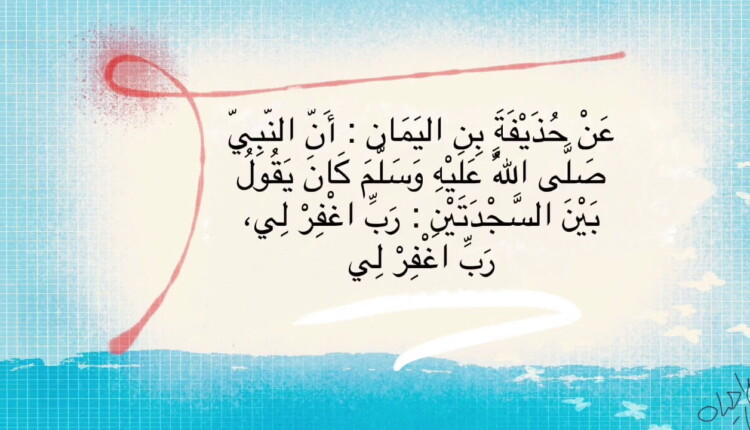 عَنْ حُذَيْفَةَ بِنِ اليَمَانِ : أَنّ النّبِيّ
صَلَّى اللهُ عَلَيْهِ وَسَلَّمَ كَانَ يَقُولُ
بَيْنَ السَّجْدَتَيْنِ : رَبِّ اغْفِرْ لِي،
رَبِّ اغْفِرْ لِي